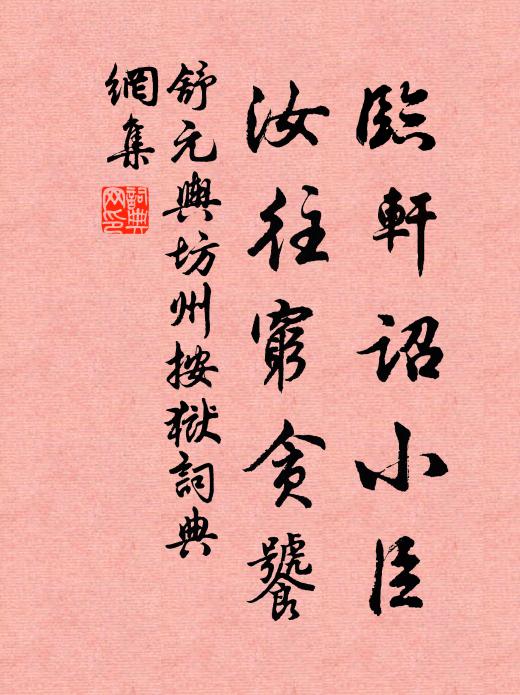 臨軒詔小臣
汝往窮貪饕
舒元輿坊州按獄詞典
網集
詞典
网印